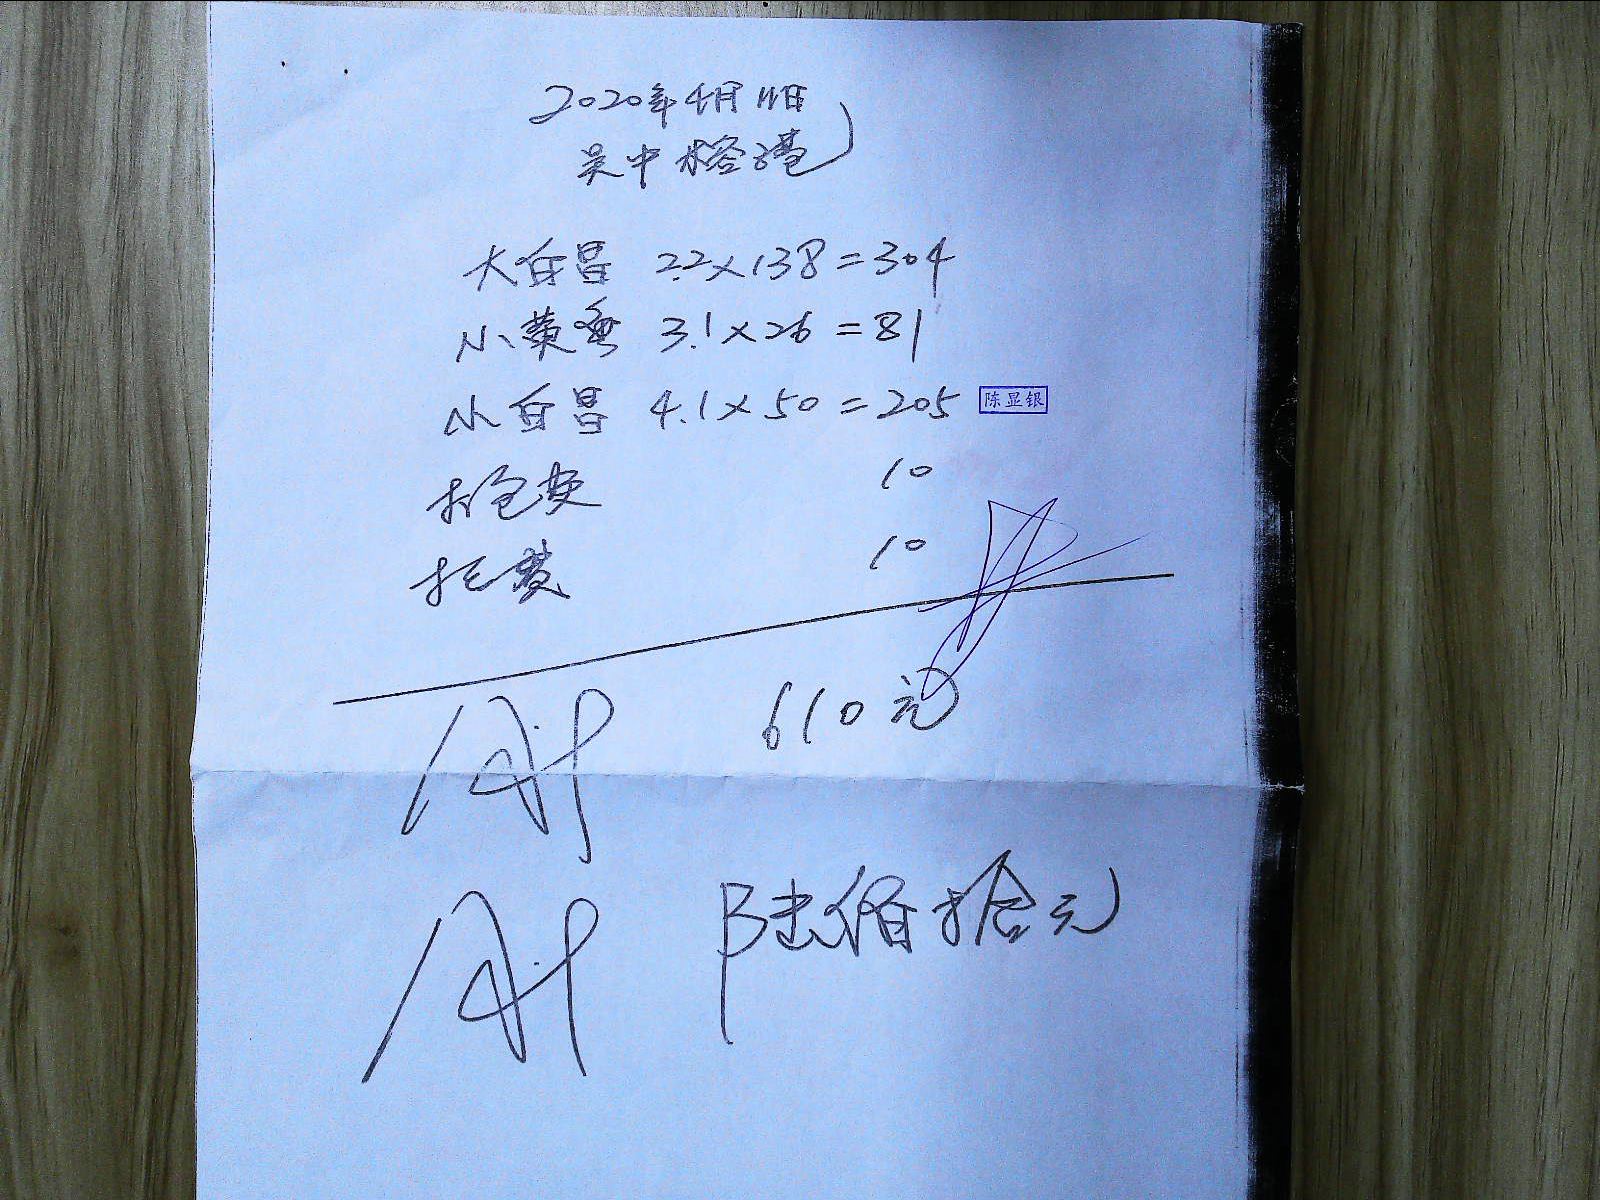 2020年4月11日
吴中榕港
大白昌 2.2×138=304
小黄鱼 3.1×26=81
小白昌 4.1×50=205
陈显银
打包费 10
托费 10
610元
陆佰拾元